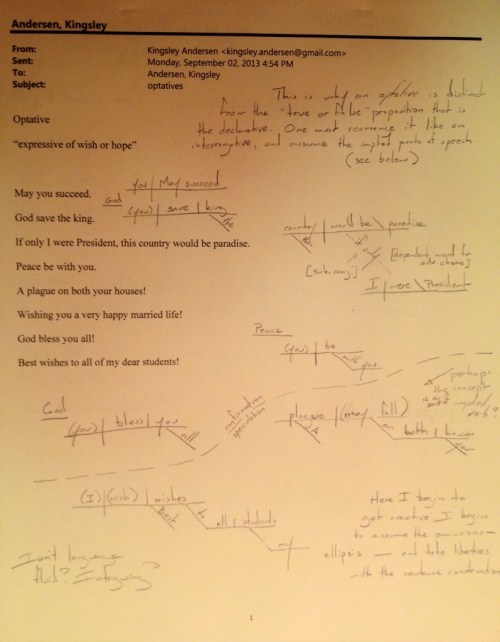 Andersen, Kingsley
From: Kingsley Andersen <kingsley.andersen@gmail.com>
Sent: Monday, September 02, 2013 4:54 PM
To: Andersen, Kingsley
Subject: optatives
This is why an optative is distinct
from the "true or false" proposition that is
the declarative. One must rearrange it like an
interrogative, and assume the implied parts of speech.
(see below)
Optative
"expressive of wish or hope"
you | May succeed
May you succeed.
God
(you) | save | king
the
God save the king.
country | would be \ paradise
this
If only I were President, this country would be paradise.
if
[subjunc.]
[dependent mood for
adv. clause]
I | were \ President
Peace be with you.
A plague on both your houses!
Wishing you a very happy married life!
Peace
(you) | be
with
you
God bless you all!
Best wishes to all of my dear students!
perhaps
the concept
is an
implied
verb?
God
(you) | bless | you
all
continuation
speculation
plague | (may fall)
A
on
both | houses
your
(I) | (wish) | wishes
Best
to
all | students
my
Here I begin to
get creative. I begin
to assume the omissions —
ellipsis — and take liberties
with the sentence construction
Isn't language
fluid? Intriguing?
1